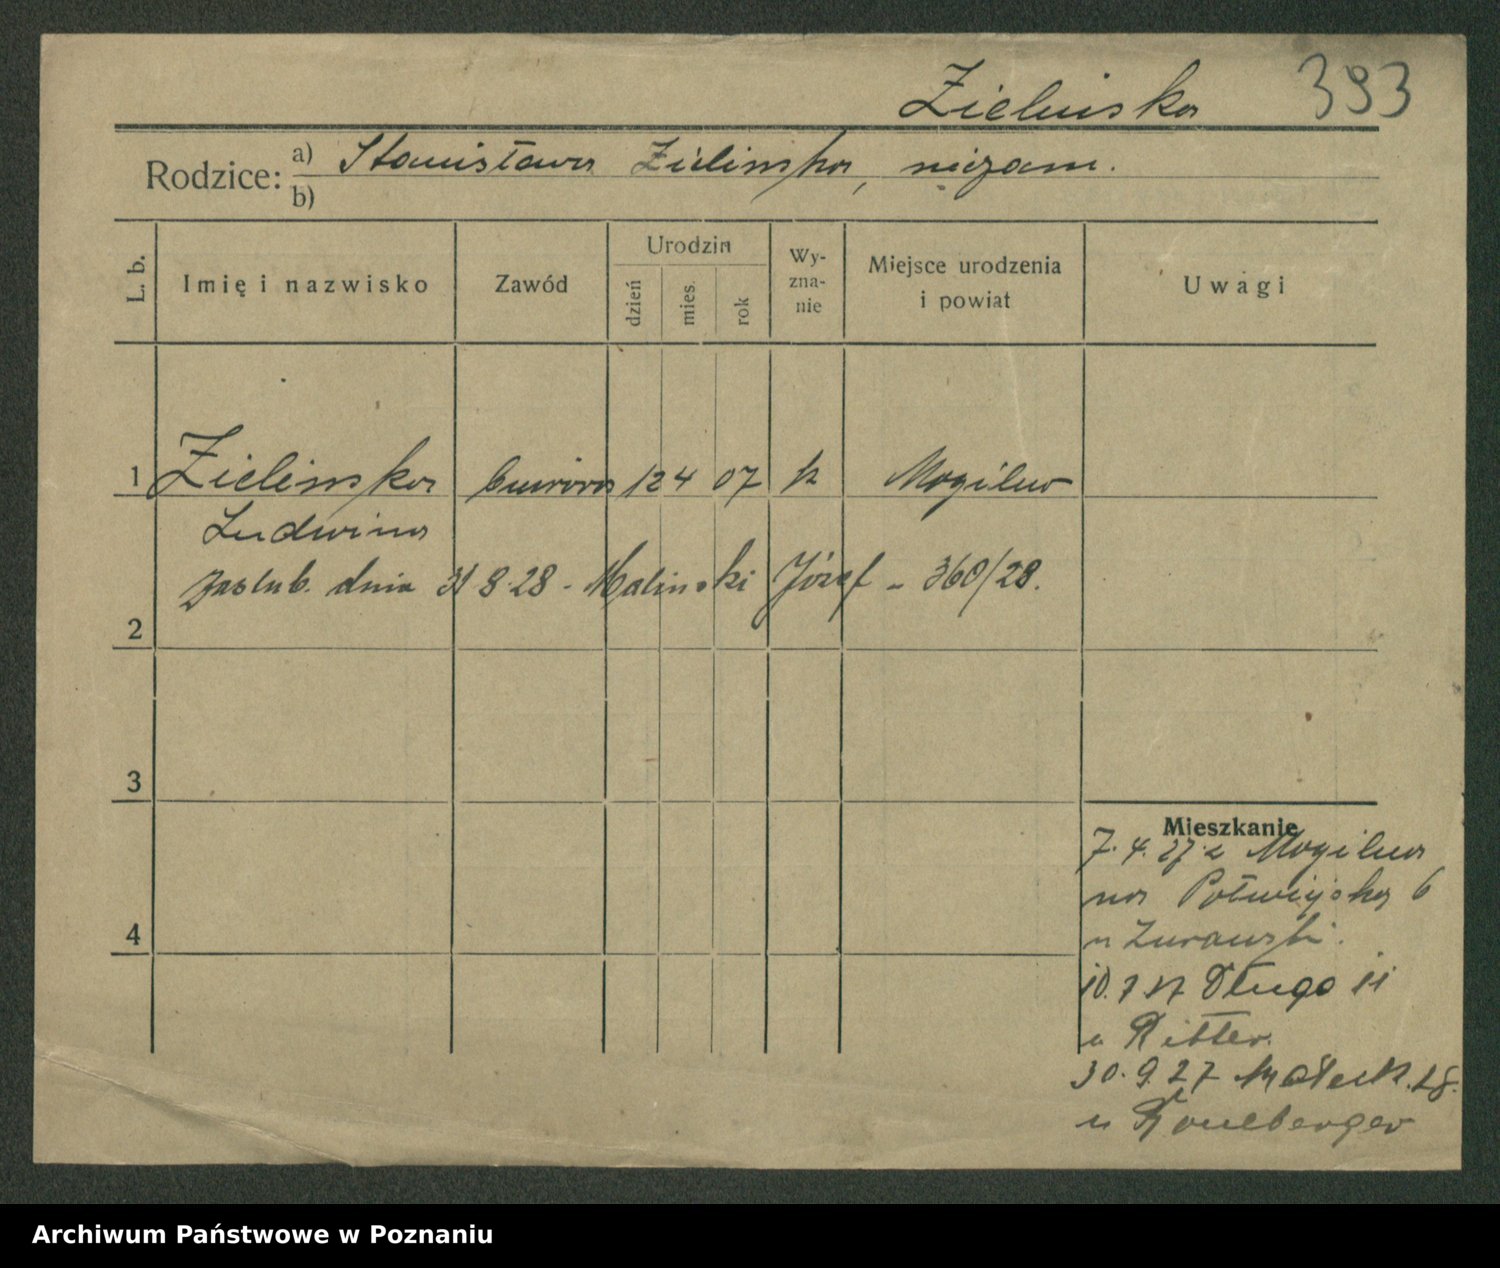 Zielinska 393
Rodzice: a) Stanisława Zielinska, niezam.
b)
L. b. Imię i nazwisko Zawód Urodzin dzień mies. rok Wy-zna-nie Miejsce urodzenia i powiat Uwagi
1 Zielinska 12 4 07 k Mogilno
Ludwina
zaslub. dnia 31 8.28 - Malinski Józef - 360/28.
2
3
4
Mieszkanie
7. 4. 27. z Mogilna
na Półwiejska 6
u Zurawski.
10.7 27 Długa 11
u Ritter.
30. 9. 27 Małeck. 28.
u
Archiwum Państwowe w Poznaniu